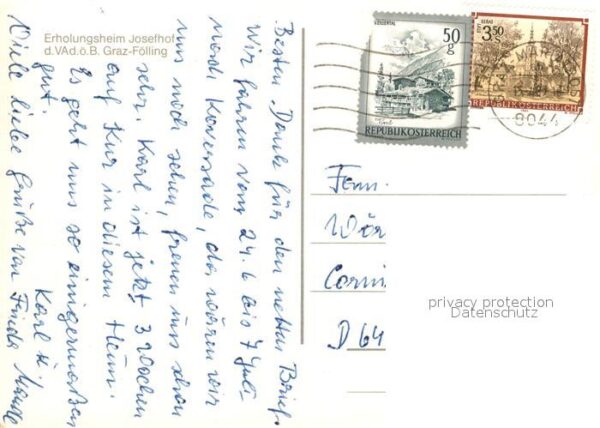 Erholungsheim Josefhof
d.VAd.ö.B. Graz-Fölling
Besten Dank für den netten Brief.
Wir fahren vom 24. 6 bis 7 Juli
nach, da wären wir
uns noch sehen, freuen uns schon
sehr. Karl ist jetzt 3 Wochen
auf Kur in diesem Heim.
Es geht uns so einigermaßen
gut.
Viele liebe Grüße von
Karl u.
ZILLERTAL
50
g
Tirol
REPUBLIK ÖSTERREICH
3.50
REPUBLIK ÖSTERREICH
8044
Fam.
Wör
Corni
D 64
privacy protection
Datenschutz